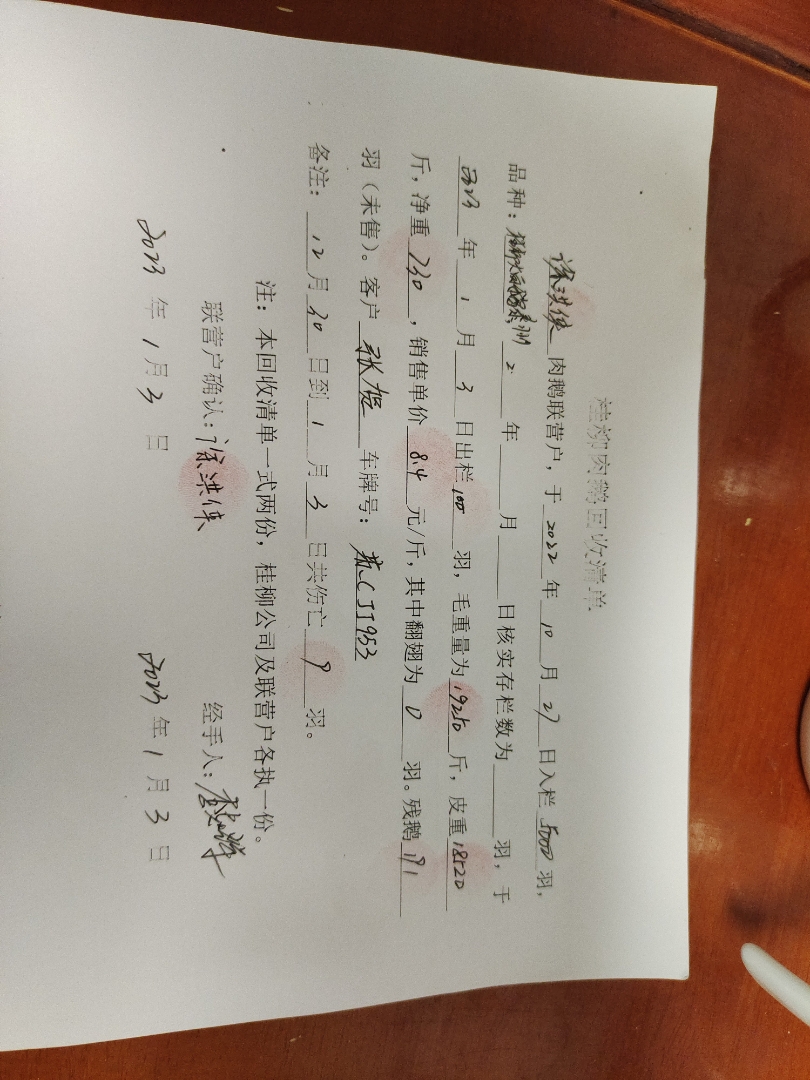 桂柳肉鹅回收清单
徐洪侠 肉鹅联营户，于 2022 年 10 月 27 日入栏 5000 羽，
品种： 2 年 月 日核实存栏数为 羽，于
2023 年 1 月 3 日出栏 100 羽，毛重量为 19250 斤，皮重 18520
斤，净重 730 ，销售单价 8.4 元/斤，其中翻翅为 0 羽。残鹅 191
羽（未售）。客户 张旭 车牌号： 苏CJJ953
备注： 12 月 30 日到 1 月 3 日共伤亡 9 羽。
注：本回收清单一式两份，桂柳公司及联营户各执一份。
联营户确认：徐洪侠 经手人：
2023 年 1 月 3 日 2023 年 1 月 3 日